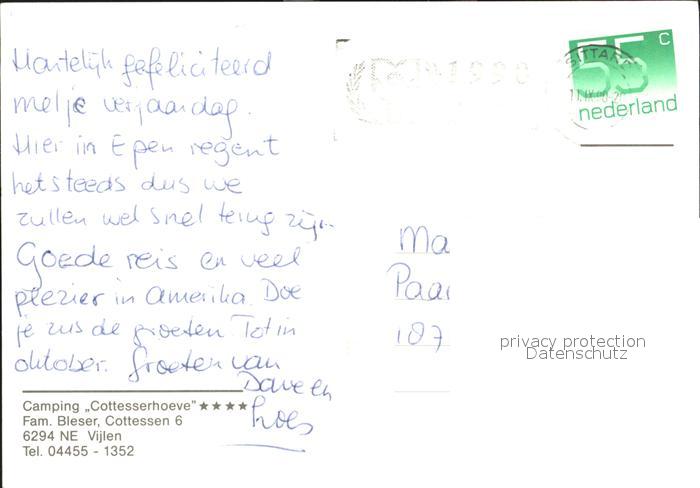 Hartelijk gefeliciteerd
met je verjaardag.
Hier in Epen regent
het steeds dus we
zullen wel snel terug zijn.
Goede reis en veel
plezier in Amerika. Doe
je zus de groeten. Tot in
oktober. Groeten van
Dave en
Camping „Cottesserhoeve" ★★★★
Fam. Bleser, Cottessen 6
6294 NE Vijlen
Tel. 04455 - 1352
1990
SITTARD
55 c
nederland
Ma
Paar
187
privacy protection
Datenschutz